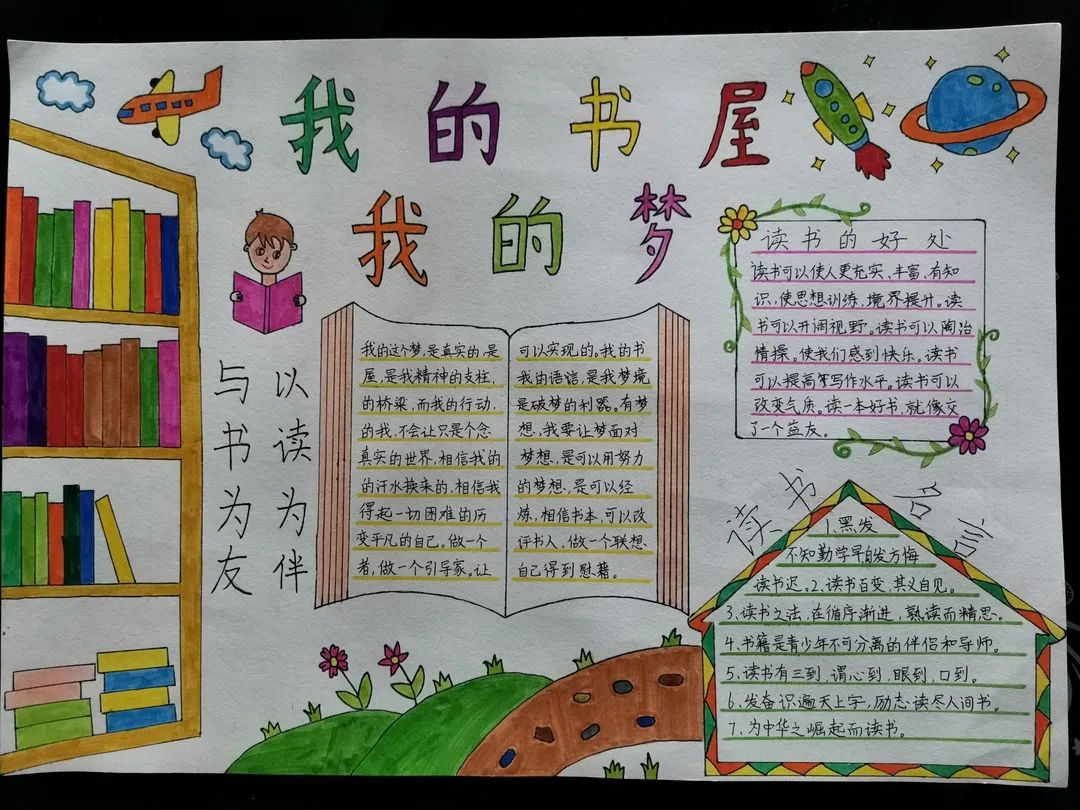 我的书屋
我的梦
与书为友
以读为伴
我的这个梦,是真实的,是
屋,是我精神的支柱,
的桥梁,而我的行动,
的我,不会让只是个念
真实的世界,相信我的
的汗水换来的,相信我
得起一切困难的历
变平凡的自己。做一个
者,做一个引导家。让
可以实现的。我的书
我由语信,是我梦境
是破梦的利器。有梦
想,我要让梦面对
梦想,是可以用努力
的梦想,是可以经
炼,相信书本,可以改
评书人,做一个联想
自己得到慰藉。
读书的好处
读书可以使人更充实、丰富、有知
识,使思想训练,境界提升。读
书可以开阔视野。读书可以陶冶
情操。使我们感到快乐。读书
可以提高写作水平。读书可以
改变气质。读一本好书,就像交
了一个益友。
读书名言
1、黑发
不知勤学早自发方悔
读书迟。2、读书百变,其义自见。
3、读书之法,在循序渐进,熟读而精思。
4、书籍是青少年不可分离的伴侣和导师。
5、读书有三到,谓心到,眼到,口到。
6、发奋识遍天上字,励志读尽人间书。
7、为中华之崛起而读书。